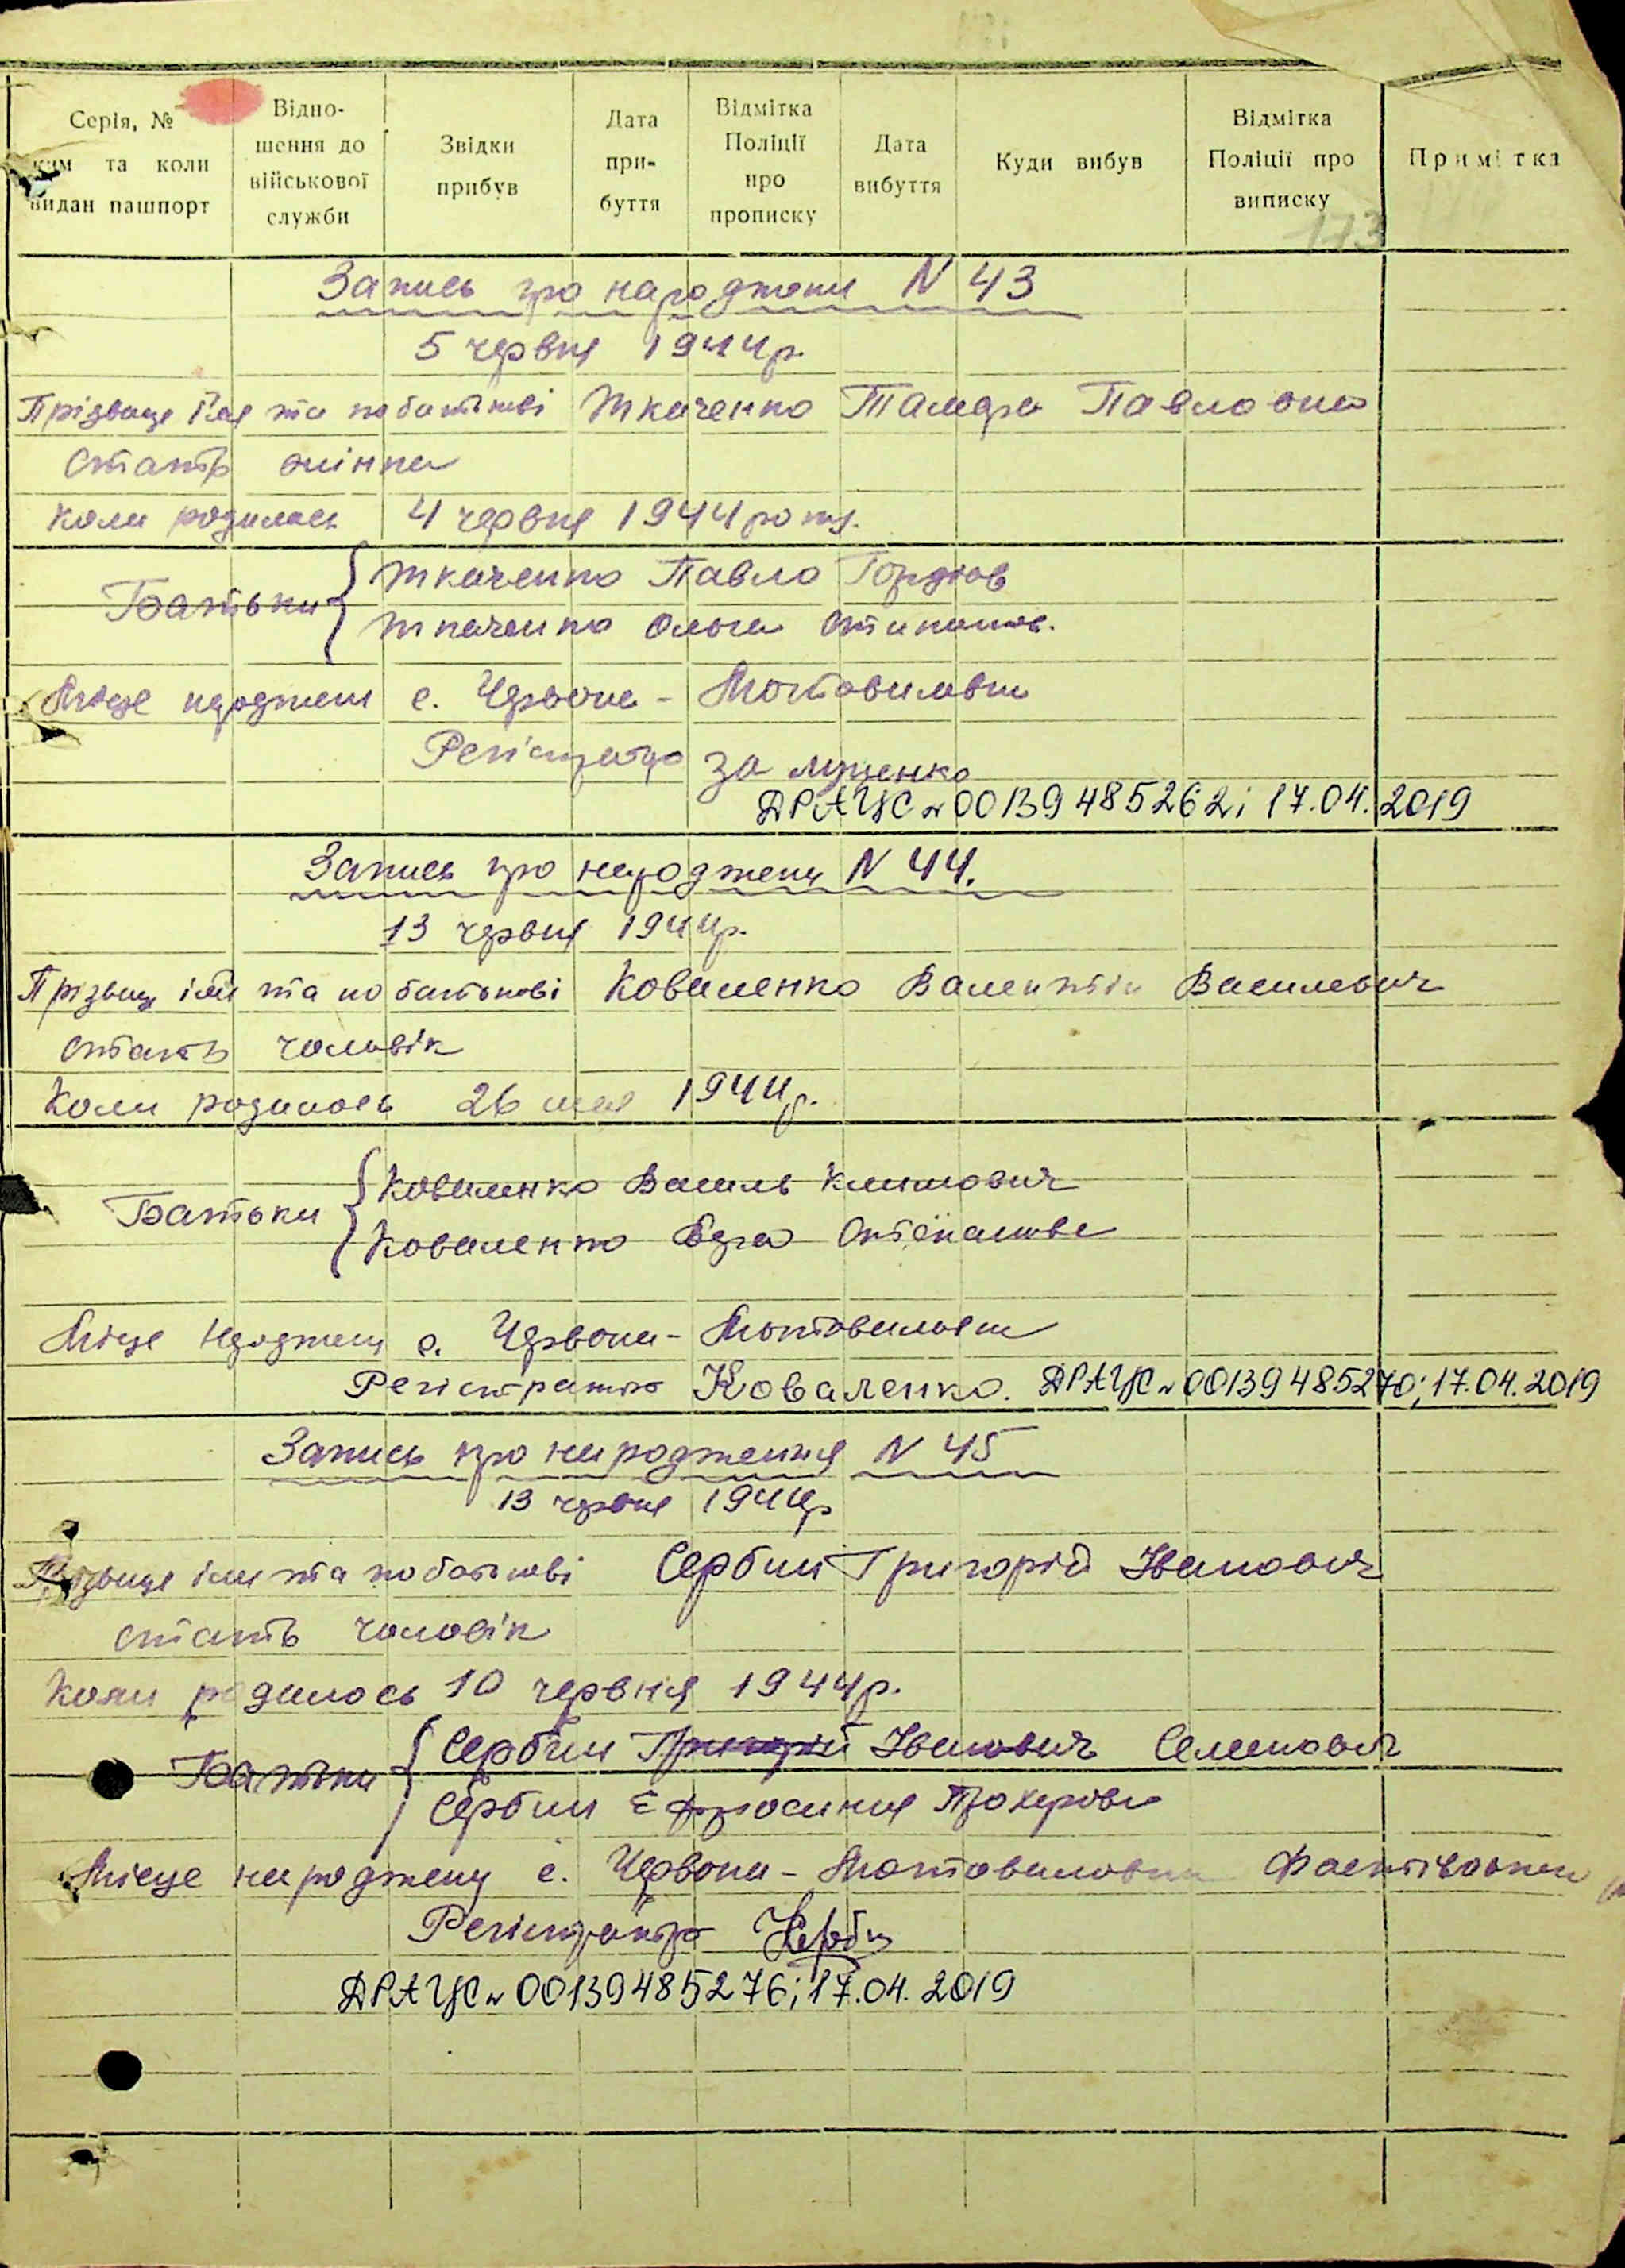 Серія, № ким та коли видан пашпорт
Відно-шення до військової служби
Звідки прибув
Дата при-буття
Відмітка Поліції про прописку
Дата вибуття
Куди вибув
Відмітка Поліції про виписку
Примітка
173
Запись про народжени N 43
5 червня 1944р.
Прізвище імя та по батькові Ткаченко Тамара Павловна
Стать жінка
Коли родилась 4 червня 1944 року.
Батьки { Ткаченко Павло Гордіов
Ткаченко Ольга Степанов.
Місце народжени с. Червона - Мотовиловка
Регістратор за Луценко
ДРАЦС № 00139485262; 17.04.2019
Запись про народженя N 44.
13 червня 1944р.
Прізвище імя та по батькові Коваленко Валентін Василевич
Стать чоловік
Коли родилось 26 мая 1944р.
Батьки { Коваленко Василь Климович
Коваленко Степановна
Місце народженя с. Червона - Мотовиловка
Регістратор Коваленко. ДРАЦС № 00139485270; 17.04.2019
Запись про народження N 45
13 червня 1944р
Прізвище імя та по батькові Сербин Григорій Іванович
Стать чоловік
Коли родилось 10 червня 1944р.
Батьки { Сербин Григорій Іванович Семенович
Сербин Єфросиния Прохоровн
Місце народженя с. Червона - Мотовиловка Фастівського
Регістратор
ДРАЦС № 00139485276; 17.04.2019